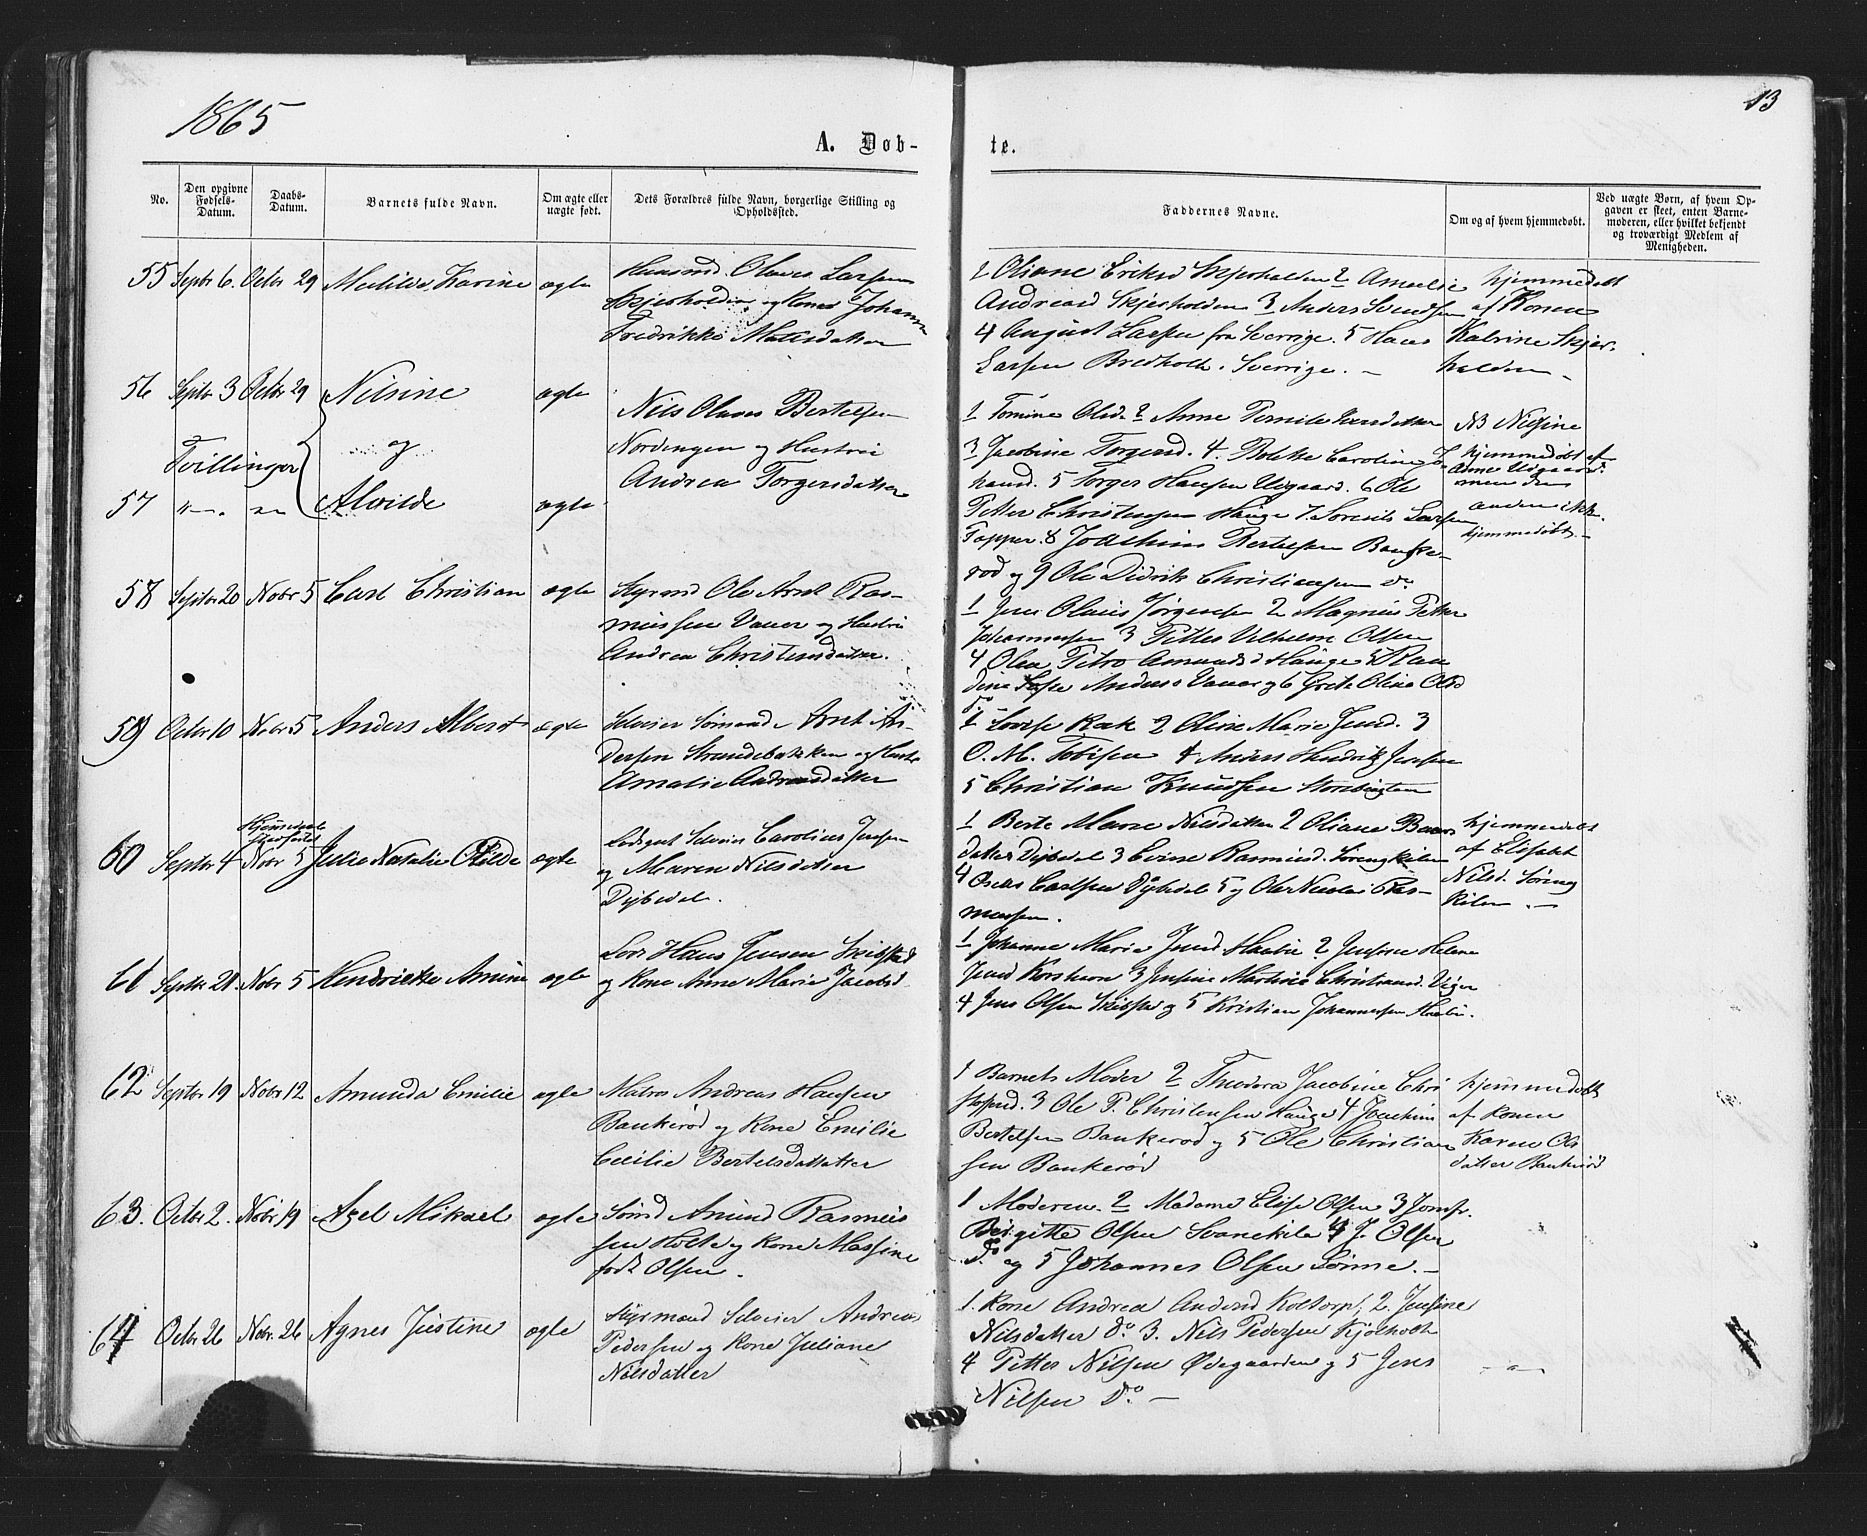 1865
13
A. Døb-
te.
No.
Den opgivne
Fødsels-
Datum.
Daabs-
Datum.
Barnets fulde Navn.
Om ægte eller
uægte født.
Dets Forældres fulde Navn, borgerlige Stilling og
Opholdssted.
Faddernes Navne.
Om og af hvem hjemmedøbt.
Ved uægte Børn, af hvem Op-
gaven er skeet, enten Barne-
moderen, eller hvilket bekjendt
og troværdigt Medlem af
Menigheden.
55 Septbr 6. Octbr 29 Karine ægte
Olaves Larsen
og Kone Johanne
Fredrikke
1 Oliane 2 Amalie
Andreasd Skjesholden 3 Anders Svendsen
4 August Larsen fra Sverrige. 5 Hans
Larsen Bredholt. Sverrige. —
hjemmedøbt
af Konen
Katrine Skjes-
holden –
56 Septbr 3 Octbr 29 Nilsine ægte
Tvillinger og
57 Alvilde ægte
Nils Olaves Bertelsen
Nordengen og Hustru
Andrea Torgersdatter
1 Tomine Olsd. 2 Anne Pernille
3 Jacobine Torgersd. 4. Caroline Jo-
hansd. 5 Torger Hansen Ødgaard. 6 Ole
Petter Christensen Hauge 7. Larsen
Topper. 8 Joachim Bertelsen Banke-
rød og 9 Ole Didrik Christiansen do
NB Nilsine
hjemmedøbt af
Anne Ødgaard.
men den
anden ikke
hjemmedøbt. –
58 Septbr 20 Nobr 5 Carl Christian ægte
Styrmd Ole Arnt Ras-
mussen Vauer og Hustru
Andrea Christensdatter.
1 Jens Olaus Jørgensen 2 Magnus Petter
Johannesen 3 Petter Vilhelm Olsen
4 Olea Petro Amundsd Hauge 5
Anders Vauer og 6 Grete Oline Olsd
do
59 Octbr 10 Nobr 5 Anders Albert ægte
Selveier Arnt An-
dersen Strandebakken og Hustr
Amalie Andreasdatter
1 Lovise 2 Oline Marie Jensd. 3
O. M. Tobisen 4 Anders Hendrik Jensen
5 Christian Knudsen
60 Septbr 4 Nobr 5 Julie Natalie Otilde ægte
Selveier Carolius Jensen
og Maren Nilsdatter
Dybedal.
1 Berte Marie Nilsdatter 2 Oliane
datter Dybedal 3 Rasmusd. Sørengkilen
4 Oskar Carlsen Dybedal 5 og Ole Nicolai Ras-
mussen.
hjemmedøbt
af Elisabet
Nilsd. Søreng
kilen. —
61 Septbr 21. Nobr 5 Hendriette Amine ægte
Lods Hans Jensen Skibstad
og Kone Anne Marie Jacobsd
1 Johanne Marie Jensd 2 Helene
Jensd Korshavn 3 Jensine Martine Christiansd. Viger
4 Jens Olsen Skibstad og 5 Kristian Johannesen
62 Septbr 19 Nobr 12 Amunda Emilie ægte
Matros Andreas Hansen
Bankerød og Kone Emilie
Cecilie Bertelsdatter
1 Barnets Moder 2 Theodora Jacobine Chri
stophersd. 3 Ole P. Christensen Hauge 4 Joachim
Bertelsen Bankerød og 5 Ole Christian
sen Bankerød
hjemmedøbt
af Konen
Karen Ols
datter Bankerød
63. Octbr 2. Nobr 19 Axel Mikael ægte
Amund Rasmus
sen Holte og Kone Massine
født Olsen.
1 Moderen. 2 Madame Elise Olsen 3 Jomfr.
Birgitte Olsen Svanekile 4 J. Olsen
do og 5 Johannes Olsen —
64 Octbr 26 Nobr. 26 Agnes Justine ægte
Styrmand Selveier Andreas
Pedersen og Kone Juliane
Nilsdatter
1. Kone Andrea Andersd 2. Jensine
Nilsdatter do 3. Nils Pedersen Kjølholt
4 Petter Nilsen Ødegaarden og 5 Jens
Nilsen do –